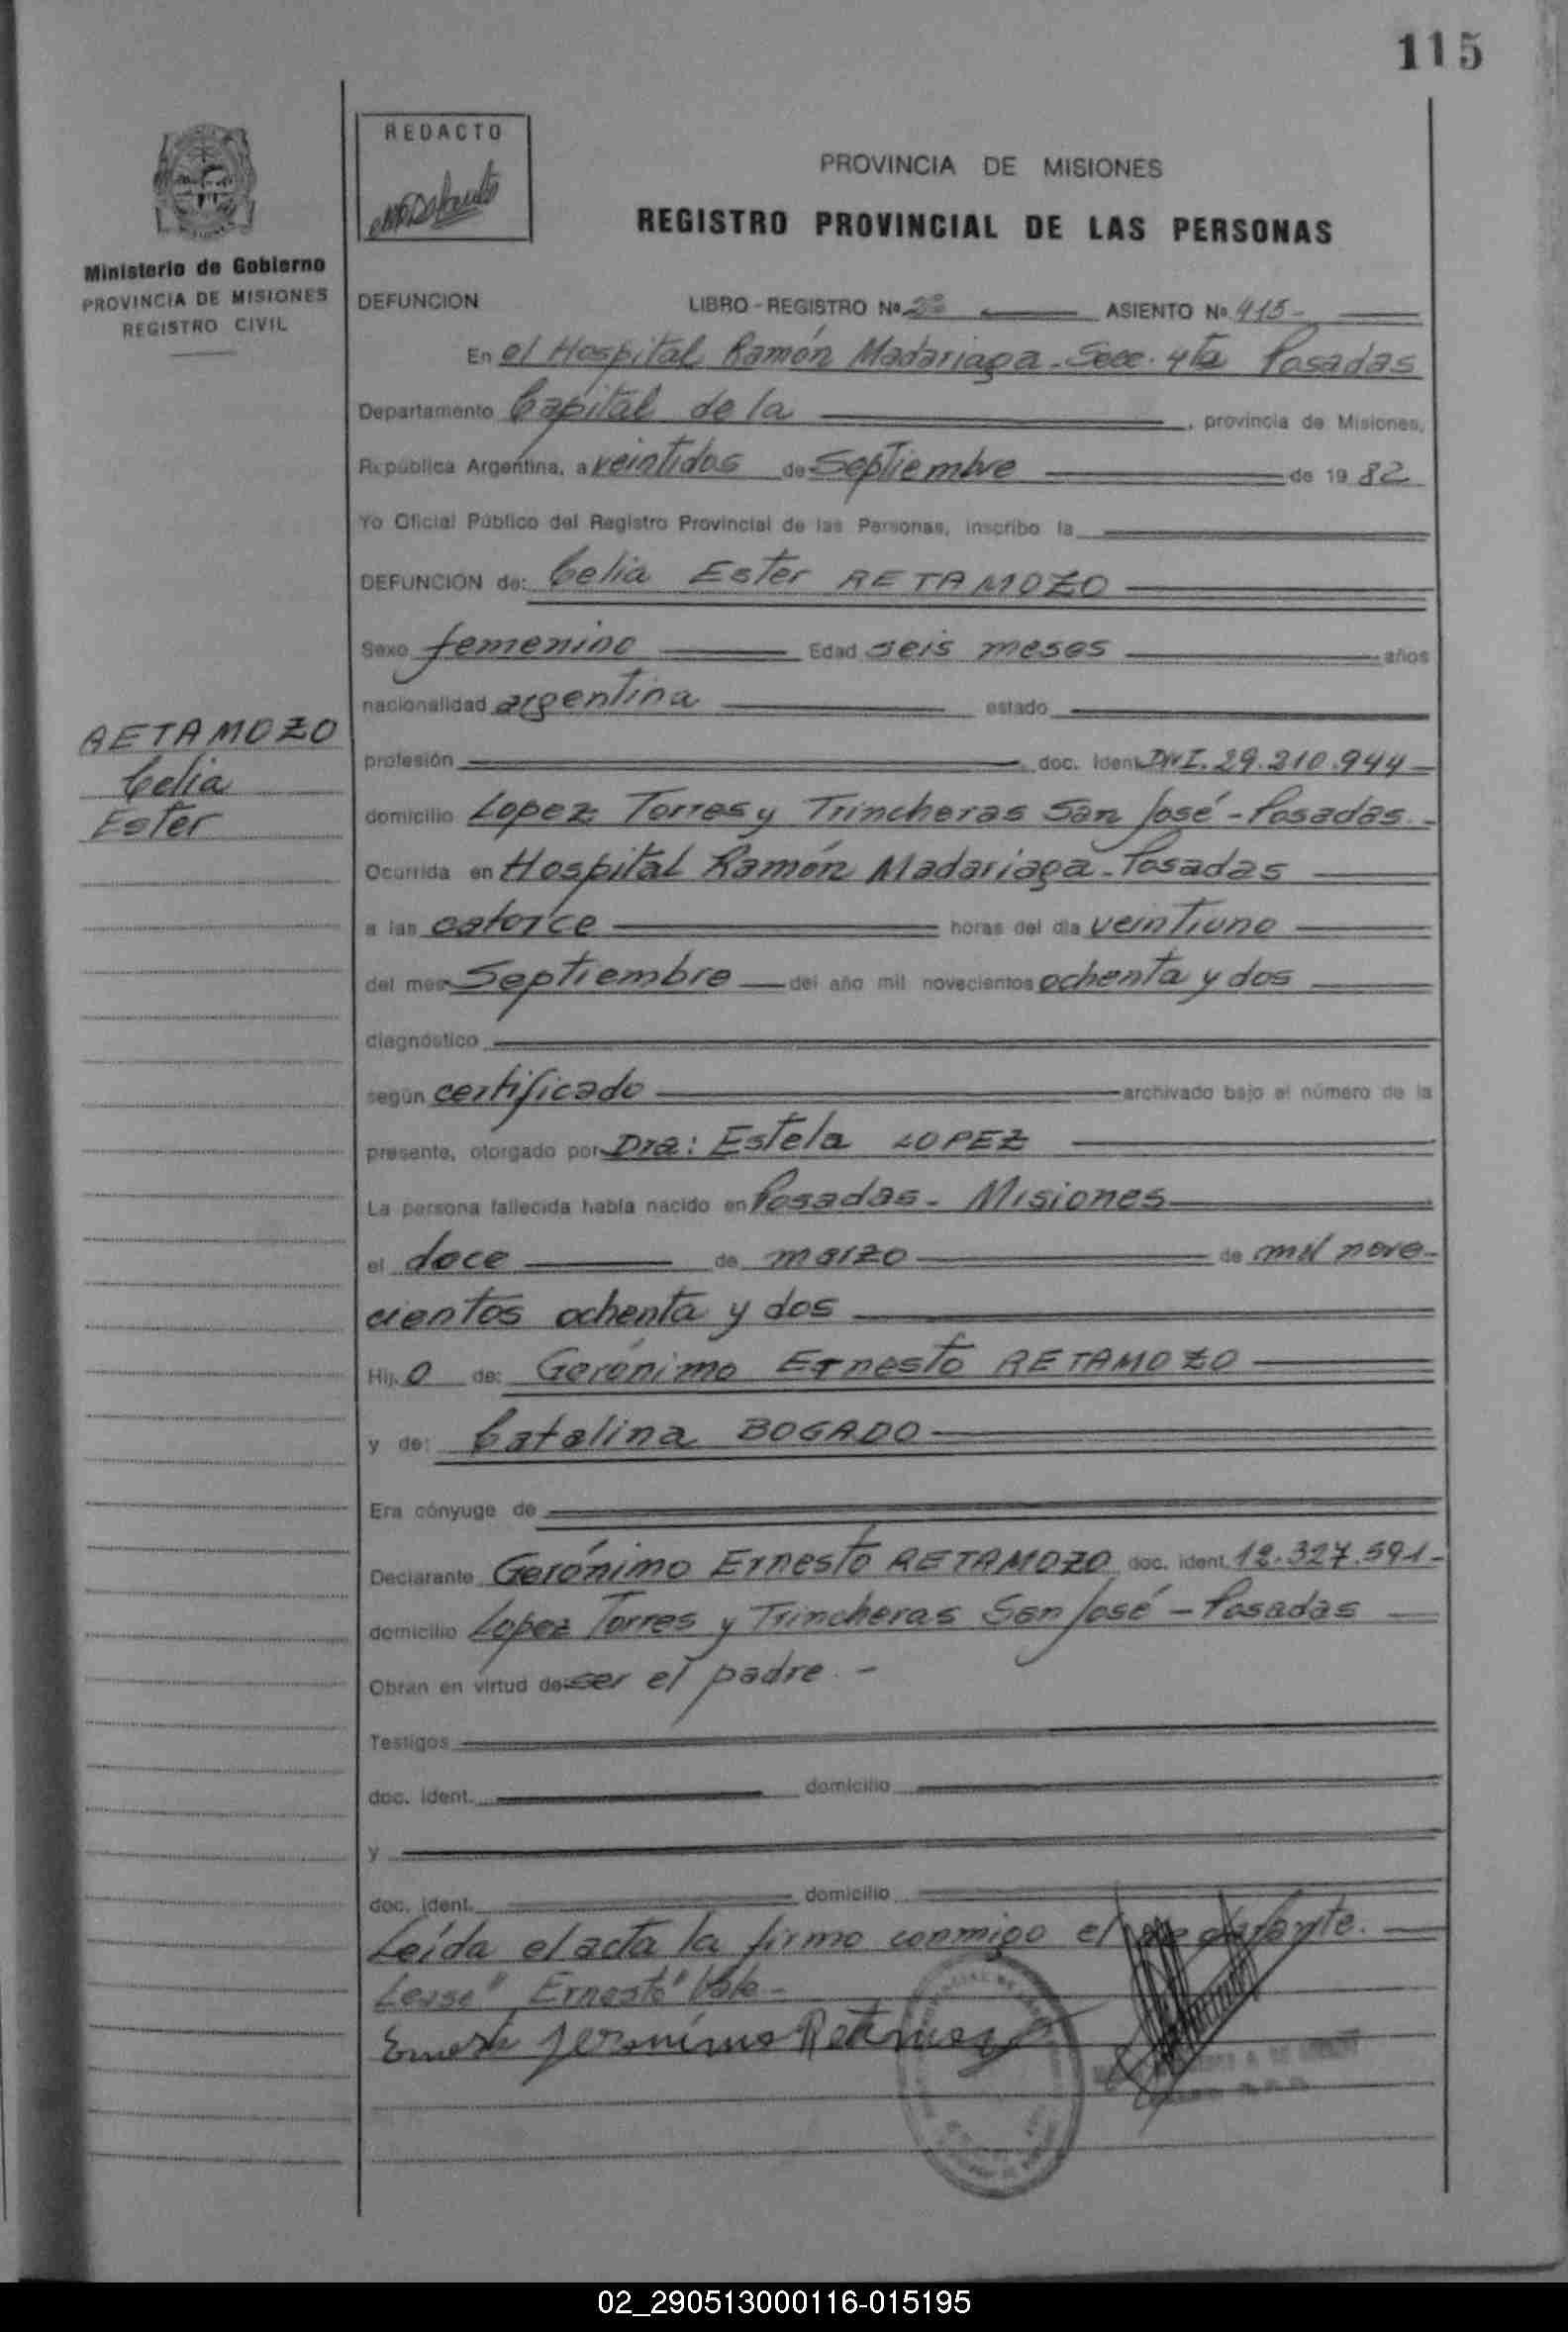 115
REDACTO
PROVINCIA DE MISIONES
REGISTRO PROVINCIAL DE LAS PERSONAS
Ministerio de Gobierno
PROVINCIA DE MISIONES
REGISTRO CIVIL
DEFUNCION LIBRO-REGISTRO Nº ASIENTO Nº 415-
En el Hospital Ramón Madariaga-Secc. 4ta Posadas
Departamento Capital de la , provincia de Misiones,
República Argentina, a veintidos de Septiembre de 1982
Yo Oficial Público del Registro Provincial de las Personas, inscribo la
DEFUNCION de: Celia Ester RETAMOZO
Sexo femenino Edad seis meses años
nacionalidad argentina estado
RETAMOZO
Celia
Ester
profesión doc. ident. DNI. 29.210.944-
domicilio Lopez Torres y Trincheras San José-Posadas.-
Ocurrida en Hospital Ramón Madariaga-Posadas
a las catorce horas del día veintiuno
del mes Septiembre del año mil novecientos ochenta y dos
diagnóstico
según certificado archivado bajo el número de la
presente, otorgado por Dra: Estela LOPEZ
La persona fallecida había nacido en Posadas-Misiones
el doce de marzo de mil nove-
cientos ochenta y dos
Hij.o de: Gerónimo Ernesto RETAMOZO
y de: Catalina BOGADO
Era cónyuge de
Declarante Gerónimo Ernesto RETAMOZO doc. ident. 12.327.591-
domicilio Lopez Torres y Trincheras San José-Posadas
Obran en virtud de ser el padre.-
Testigos
doc. ident. domicilio
y
doc. ident. domicilio
Leída el acta la firmo conmigo el declarante.
Lease "Ernesto" Vale-
Ernesto Jeronimo Retamozo
02_290513000116-015195